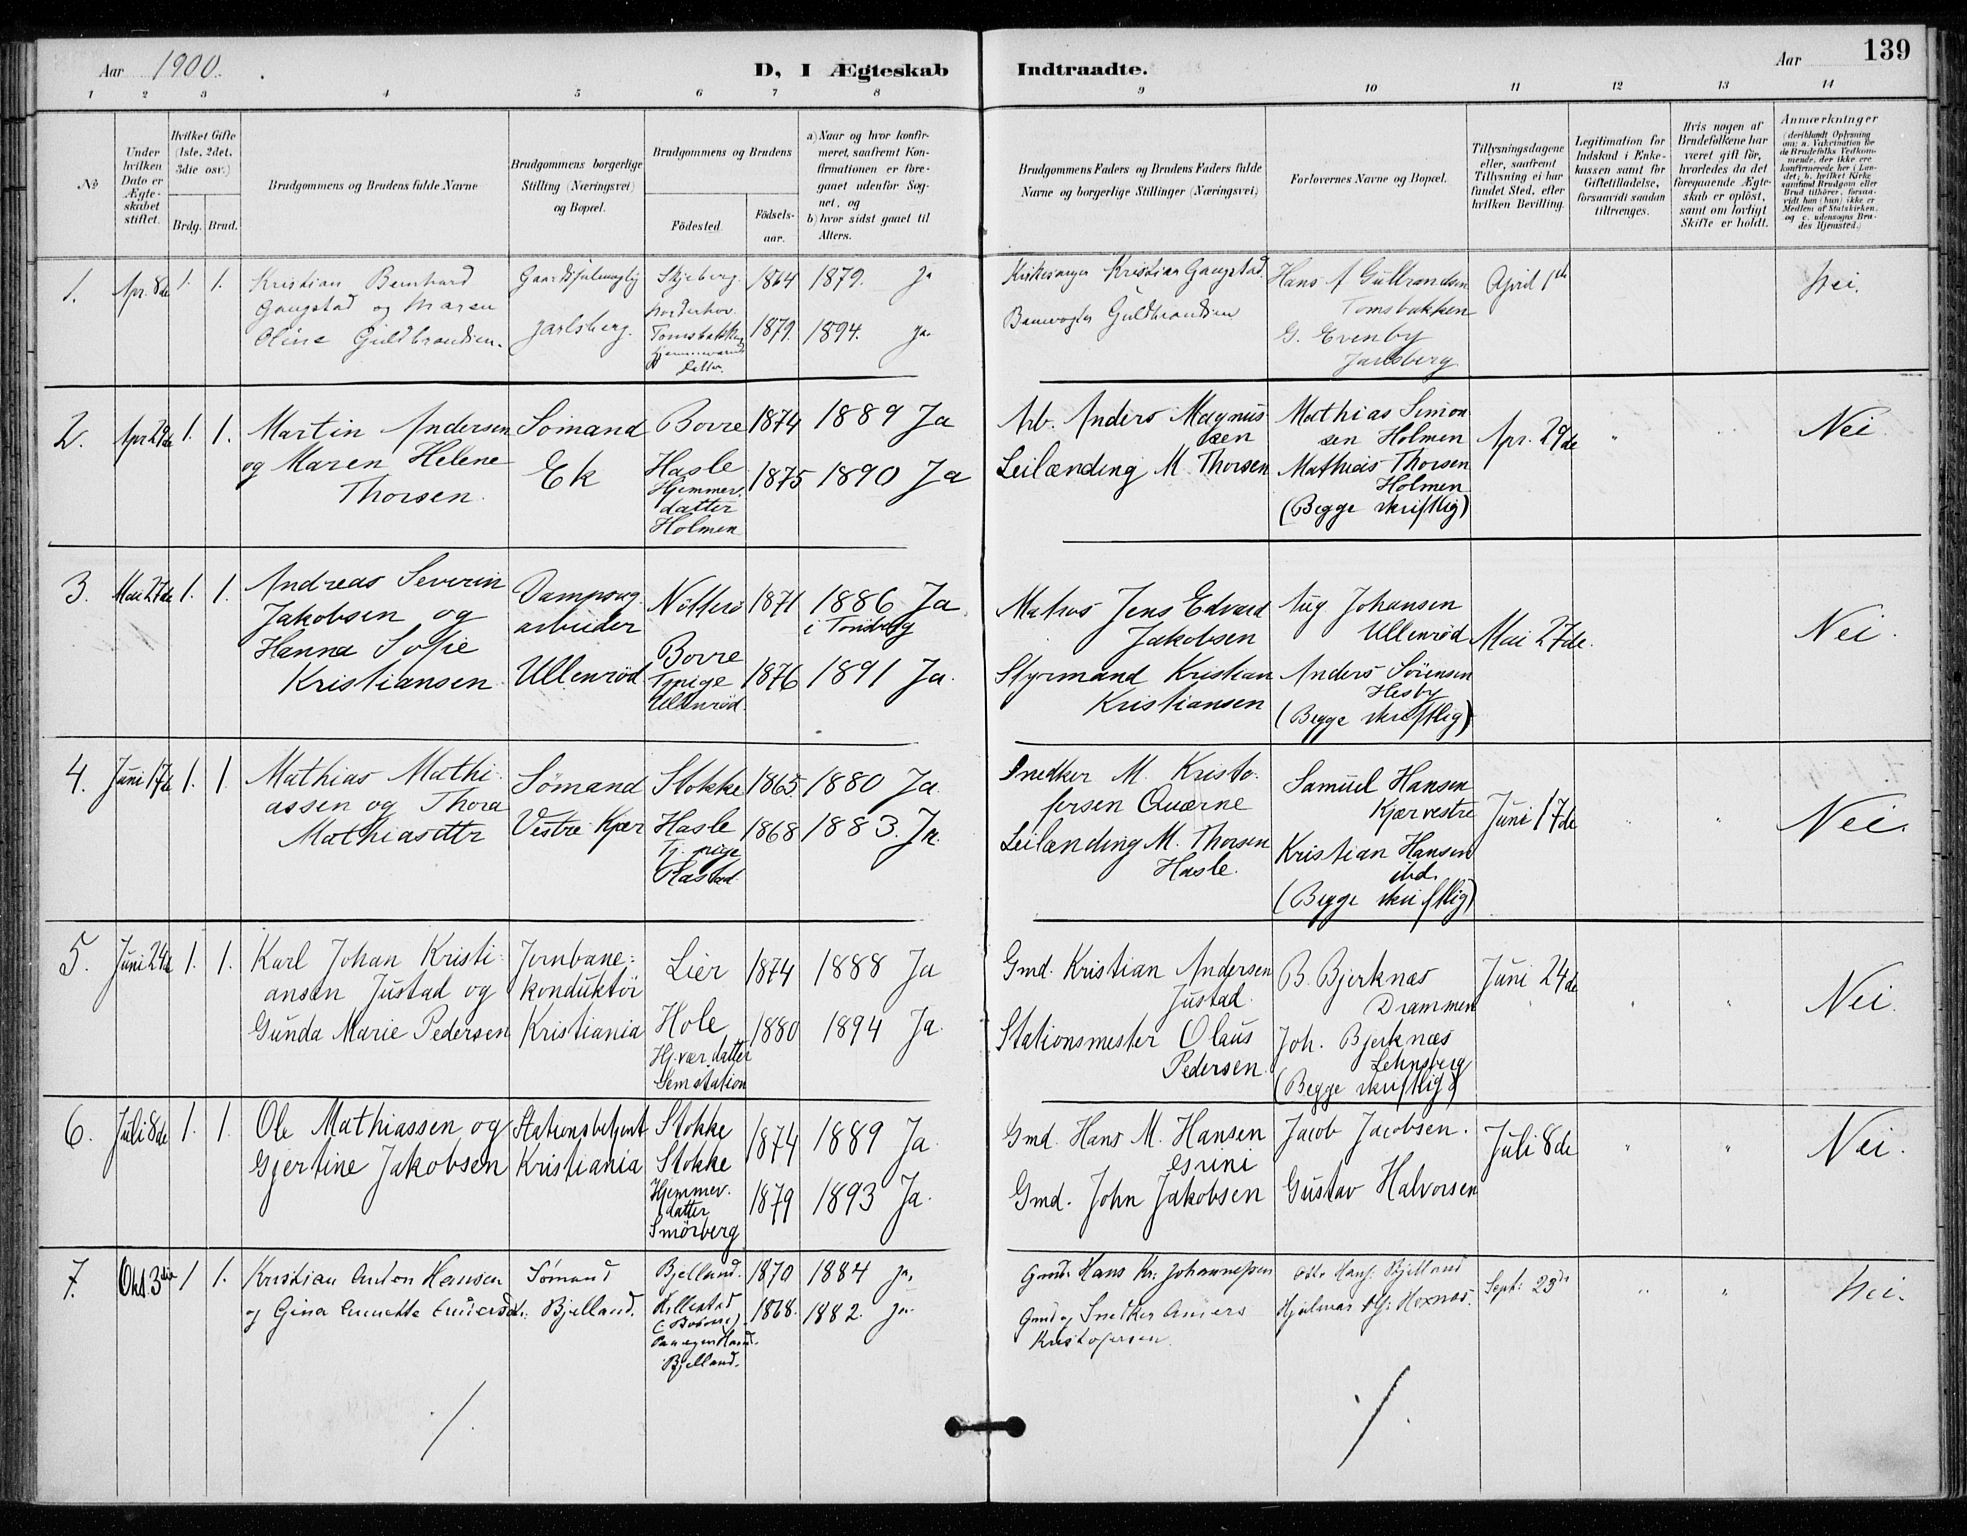 Aar 1900.
D, I Ægteskab
1 2 3 4 5 6 7 8
No
Under hvilken Dato er Ægte-skabet stiftet.
Hvilket Gifte (1ste, 2det, 3die osv.)
Brdg. Brud.
Brudgommens og Brudens fulde Navne
Brudgommens borgerlige Stilling (Næringsvei) og Bopæl.
Brudgommens og Brudens
Födested.
Födsels-aar.
a) Naar og hvor konfir-meret, saafremt Kon-firmationen er fore-gaaet udenfor Sog-net, og
b) hvor sidst gaaet til Alters.
1. Apr. 8de 1. 1. Kristian Bernhard Skjeberg. 1864 1879. Ja
Gangstad og Maren Jarlsberg. Norderhov.
Oline Guldbrandsen. 1879. 1894. Ja.
2. Apr 29de 1. 1. Martin Andersen Sömand Borre 1874 1889 Ja
og Maren Helene Ek Hasle 1875 1890 Ja
Thorsen. Hjemmev.
datter
Holmen
3. Mai 27de 1. 1. Andreas Severin Dampsag- Nötterö 1871 1886 Ja
Jakobsen og arbeider i Tönsberg
Hanna Sofie Ullenröd Borre 1876 1891 Ja.
Kristiansen Tj.pige
Ullenröd.
4. Juni 17de 1. 1. Mathias Mathi- Sömand Stokke 1865 1880 Ja.
assen og Thora Vestre Kjær Hasle 1868 1883. Ja.
Mathiasdtr Tj. pige
5. Juni 24de 1. 1. Karl Johan Kristi- Jernbane= Lier 1874 1888 Ja
ansen Justad og konduktör
Gunda Marie Pedersen Kristiania Hole 1880 1894 Ja.
Hj.vær.datter
Sem station
6. Juli 8de 1. 1. Ole Mathiassen og Stationsbetjent Stokke 1874 1889 Ja.
Gjertine Jakobsen Kristiania Stokke
Hjemmev. 1879 1893 Ja.
datter
Smörberg
7. Okt. 3die 1 1. Kristian Anton Hansen Sömand Bjelland. 1870 1884 Ja.
og Gina Annette Bjelland. Hillestad 1868. 1882. Ja.
Bjelland.
139
Indtraadte. Aar
9 10 11 12 13 14
Brudgommens Faders og Brudens Faders fulde Navne og borgerlige Stillinger (Næringsvei)
Forlovernes Navne og Bopæl.
Tillysningsdagene eller, saafremt Tillysning ei har fundet Sted, efter hvilken Bevilling.
Legitimation for Indskud i Enke-kassen samt for Giftetilladelse, forsaavidt saadan tiltrænges.
Hvis nogen af Brudefolkene har været gift för, hvorledes da det foregaaende Ægte-skab er oplöst, samt om lovligt Skifte er holdt.
Anmærkninger (deriblandt Oplysning om: a. Vakcination for de Brudefolks Vedkom-mende, der ikke ere konfirmerede her i Lan-det; b. hvilket Kirke-samfund Brudgom eller Brud tilhörer, forsaa-vidt han (hun) ikke er Medlem af Statskirken, og c. udensogns Bru-des Hjemsted.)
Kirkesanger Kristian Gangstad. April 1ste Nei.
Banevogter Guldbrandsen Tomsbakken
G. Evenby
Jarlsberg
Arb. Anders Magnus- Mathias Simon- Apr. 29de " Nei.
sen sen Holmen
Leilænding M. Thorsen Mathias Thorsen
Holmen
(Begge skriftlig)
Matros Jens Edvard Aug Johansen Mai 27de. Nei.
Jakobsen Ullenröd
Styrmand Kristian Anders Sörensen
Kristiansen Hesby
(Begge skriftlig)
Snedker M. Kristo- Samuel Hansen Juni 17de " " Nei.
fersen Quærne Kjær vestre
Leilænding M. Thorsen Kristian Hansen
Hasle. ibid.
(Begge skriftlig)
Gmd. Kristian Andersen B. Bjerknæs Juni 24de " " Nei.
Justad. Drammen
Stationsmester Olaus Joh. Bjerknæs
Pedersen.
(Begge skriftlig)
Gmd. Hans M. Hansen Jacob Jacobsen. Juli 8de " " Nei.
Gmd. John Jakobsen Gustav Halvorsen
Gmd. Hans Kr. Johannessen Otto Hans. Bjelland Sept: 23de " " Nei.
Gmd og Snedker Anders
Kristofersen.